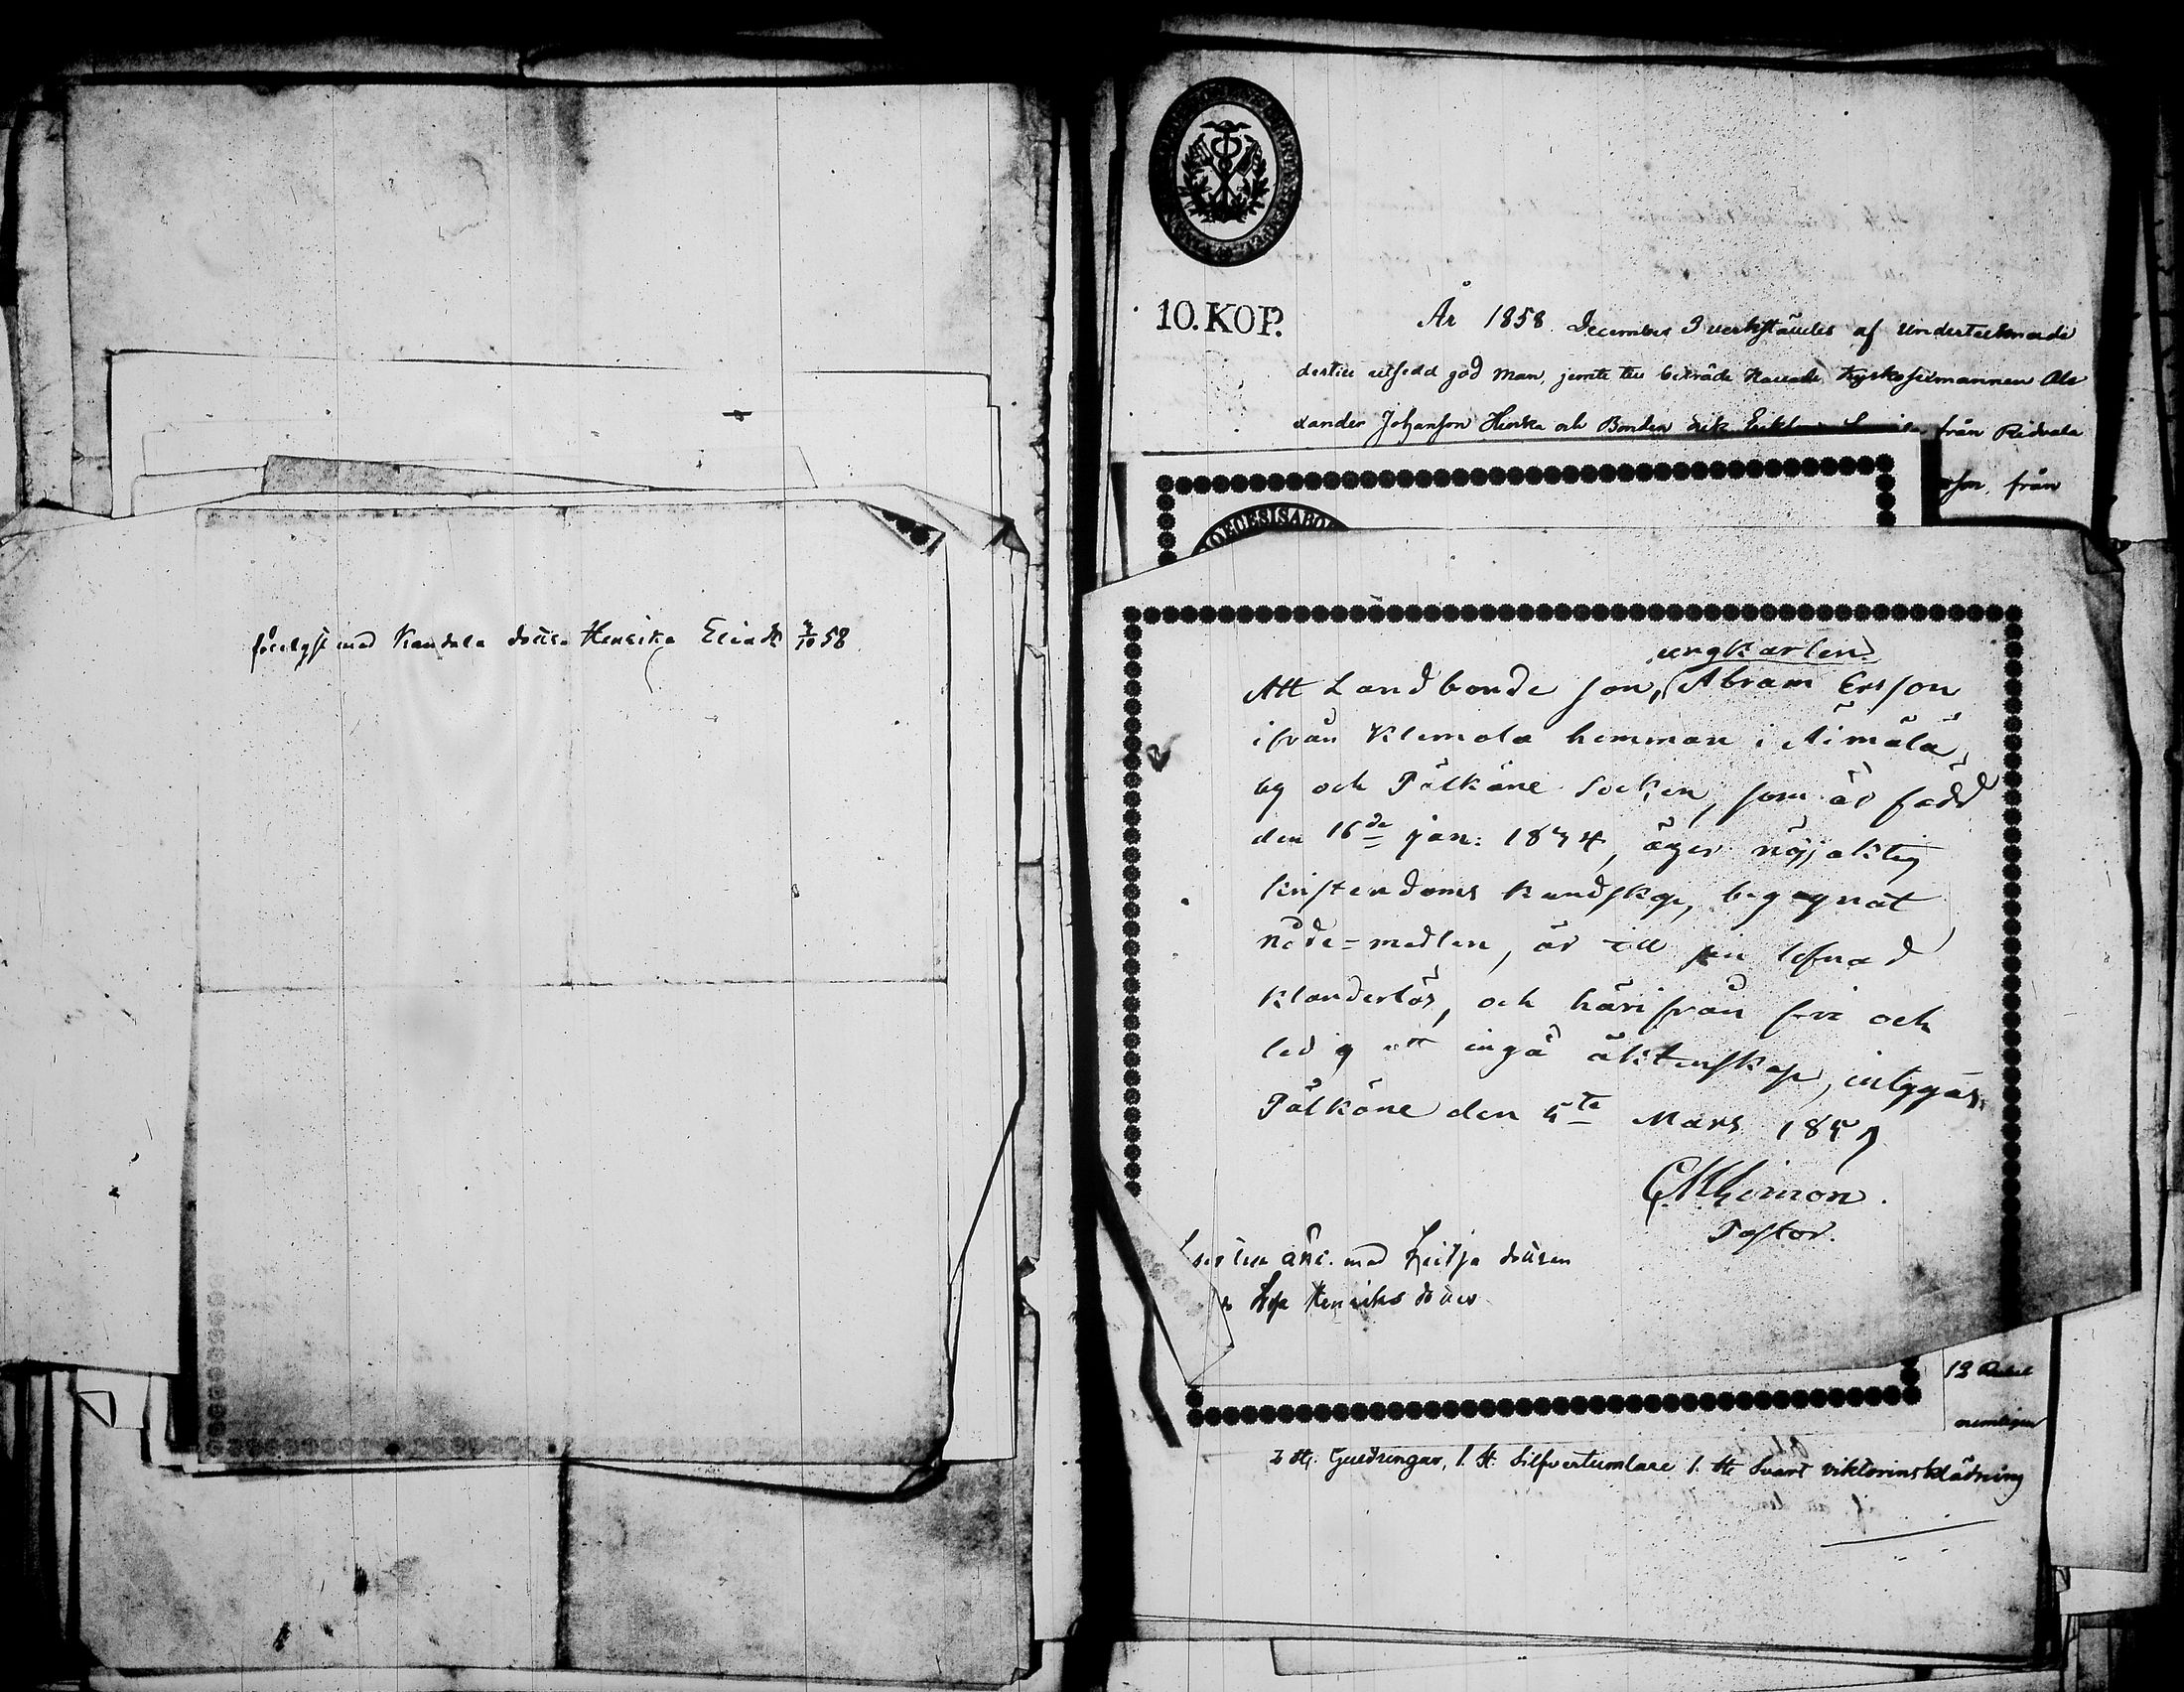 förelyst med Kandala dottr. Henrika Eliaedr 3/10 58.
10. KOP.
År 1858 December 3 verkställdes af undertecknade
dertill utsedd god man, jemte till biträde kallade Kyrkosexmannen Ale
xander Johansson Hinka och Bonden Erik från Ridvala
son, från
OECESIS ABO
ungkarlen
Att Landbonde son, Abram Ersson
ifrån Klemola hemman i Äimälä
by och Pälkäne Socken, som är född
den 16de Jan: 1834, äger nöjaktig
kristendoms kundskap, begagnat
nåde-medlen, är till sin lefnad
klanderlös, och härifrån fri och
ledig att ingå äktenskap, intygas.
Pälkäne den 5te Mars 1857
Limon.
Pastor.
med Zeitja dottren
Henriks dotter
12
nemligen
2 st. Guldringar, 1. st. Silfvertumlare 1. st. Svart viktorinsklädning